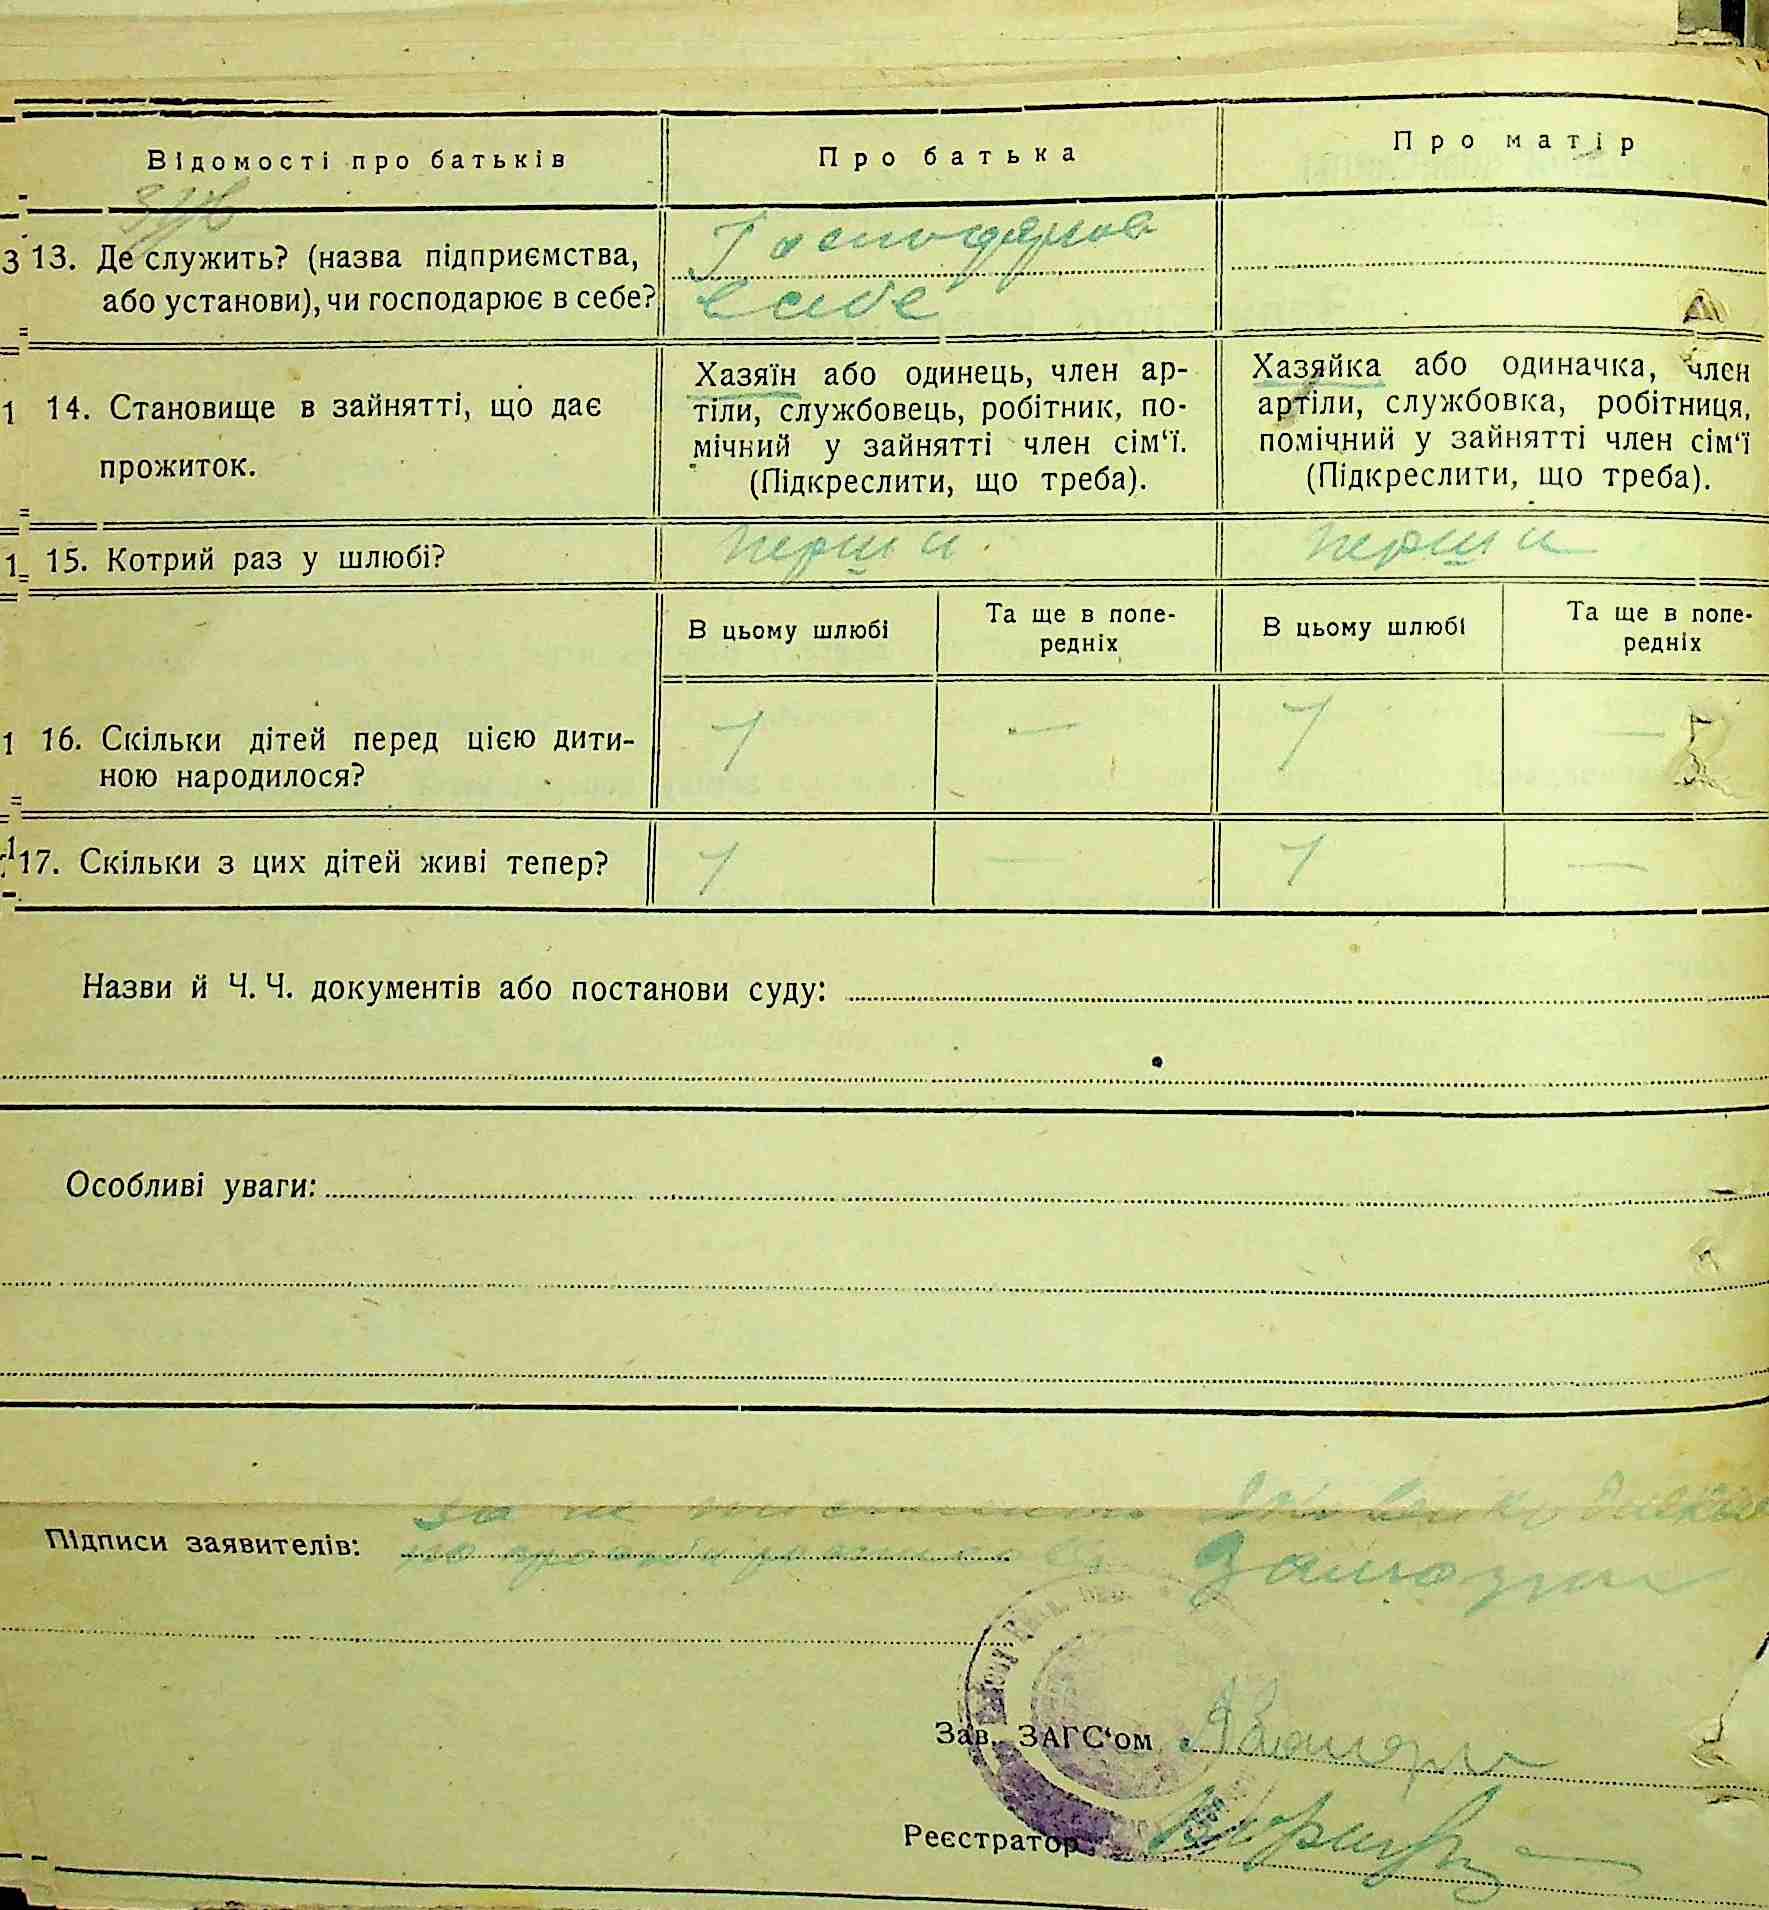 Відомості про батьків
Про батька
Про матір
3 13. Де служить? (назва підприємства,
або установи), чи господарює в себе?
в себе
1 14. Становище в зайнятті, що дає
прожиток.
Хазяїн або одинець, член ар-
тіли, службовець, робітник, по-
мічний у зайнятті член сім‘ї.
(Підкреслити, що треба).
Хазяйка або одиначка, член
артіли, службовка, робітниця,
помічний у зайнятті член сім‘ї
(Підкреслити, що треба).
1 15. Котрий раз у шлюбі?
перший
перший
В цьому шлюбі
Та ще в попе-
редніх
В цьому шлюбі
Та ще в попе-
редніх
1 16. Скільки дітей перед цією дити-
ною народилося?
1 — 1 —
1 17. Скільки з цих дітей живі тепер?
1 — 1 —
Назви й Ч. Ч. документів або постанови суду:
Особливі уваги:
Підписи заявителів:
Зав. ЗАГС‘ом
Реєстратор